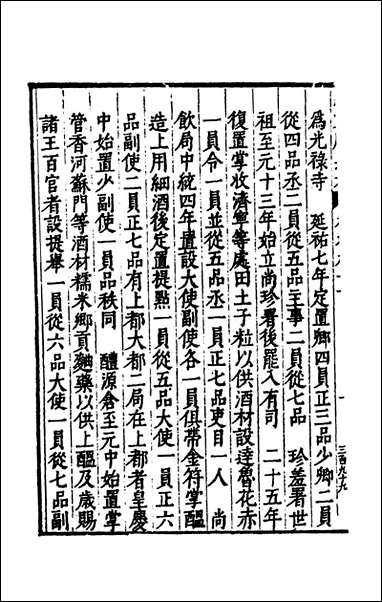 為光祿寺 延祐七年定置卿四員正三品少卿二員
從四品丞二員從五品主事二員從七品 珍羞署世
祖至元十三年始立尚珍署後罷入有司 二十五年
復置掌收濟寧等處田土子粒以供酒材設達魯花赤
一員令一員並從五品丞一員正七品吏目一人 尚
飲局中統四年置設大使副使各一員俱帶金符掌醞
造上用細酒後定置提點一員從五品大使一員正六
品副使二員正七品有上都大都二局在上都者皇慶
中始置少副使一員品秩同 醴源倉至元中始置掌
管香河蘇門等酒材糯米鄉貢麯藥以供上醞及歲賜
諸王百官者設提舉一員從六品大使一員從七品副
三百九十九